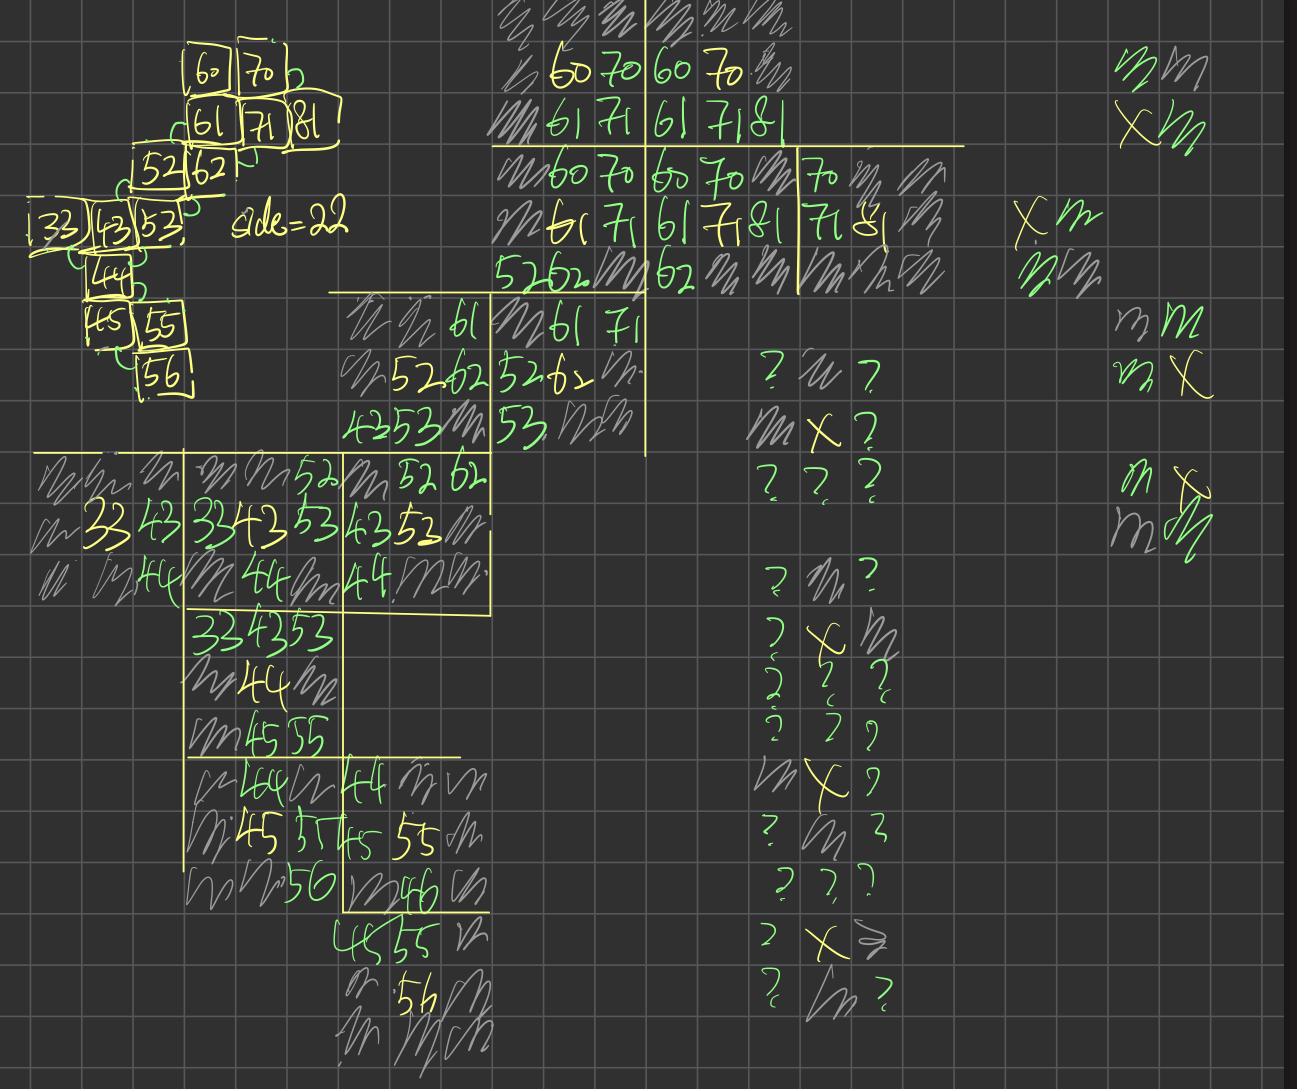 60 70
61 71 81
52 62
33 43 53
side=22
44
45 55
56
60 70 60 70
61 71 61 71 81
60 70 60 70 70
61 71 61 71 81 71 81
52 62 62
61 61 71
52 62 52 62
43 53 53
52 52 62
33 43 33 43 53 43 53
44 44 44
33 43 53
44
45 55
44 44
45 55 45 55
56 46
45 55
56
? ?
X ?
? ? ?
? ?
? X
? ? ?
? ? ?
X ?
? ?
? ? ?
? X
? ?
X
X
X
X